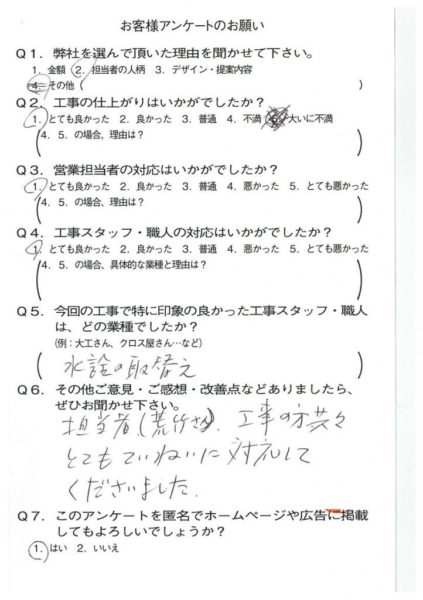 お客様アンケートのお願い
Q1. 弊社を選んで頂いた理由を聞かせて下さい。
1. 金額 2. 担当者の人柄 3. デザイン・提案内容
4. その他 ( )
Q2. 工事の仕上がりはいかがでしたか？
1. とても良かった 2. 良かった 3. 普通 4. 不満 5. 大いに不満
(4. 5. の場合、理由は？ )
Q3. 営業担当者の対応はいかがでしたか？
1. とても良かった 2. 良かった 3. 普通 4. 悪かった 5. とても悪かった
(4. 5. の場合、理由は？ )
Q4. 工事スタッフ・職人の対応はいかがでしたか？
1. とても良かった 2. 良かった 3. 普通 4. 悪かった 5. とても悪かった
(4. 5. の場合、具体的な業種と理由は？ )
Q5. 今回の工事で特に印象の良かった工事スタッフ・職人
は、どの業種でしたか？
(例：大工さん、クロス屋さん…など)
水詮の取替え
Q6. その他ご意見・ご感想・改善点などありましたら、
ぜひお聞かせ下さい。
担当者(荒竹さん)、工事の方共々
とてもていねいに対応して
くださいました。
Q7. このアンケートを匿名でホームページや広告に掲載
してもよろしいでしょうか？
1. はい 2. いいえ